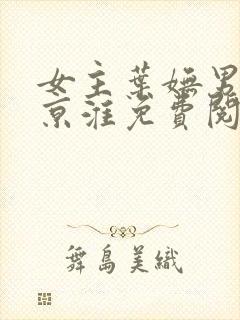 女主葉嫵男
京淮免費閱
舞島美織